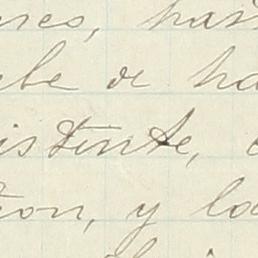 res, has
be de ha
istente, e
ion, y la